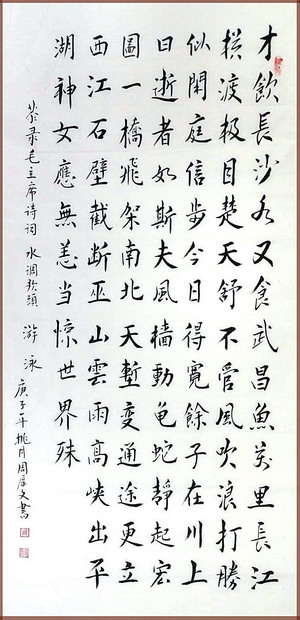 才飲長沙水又食武昌魚萬里長江
橫渡极目楚天舒不管風吹浪打勝
似閑庭信步今日得寬餘子在川上
曰逝者如斯夫風檣動龜蛇靜起宏
圖一橋飛架南北天塹變通途更立
西江石壁截断巫山雲雨高峽出平
湖神女應無恙当惊世界殊
恭录毛主席诗词 水调歌頭 游泳 庚子年桃月周文書